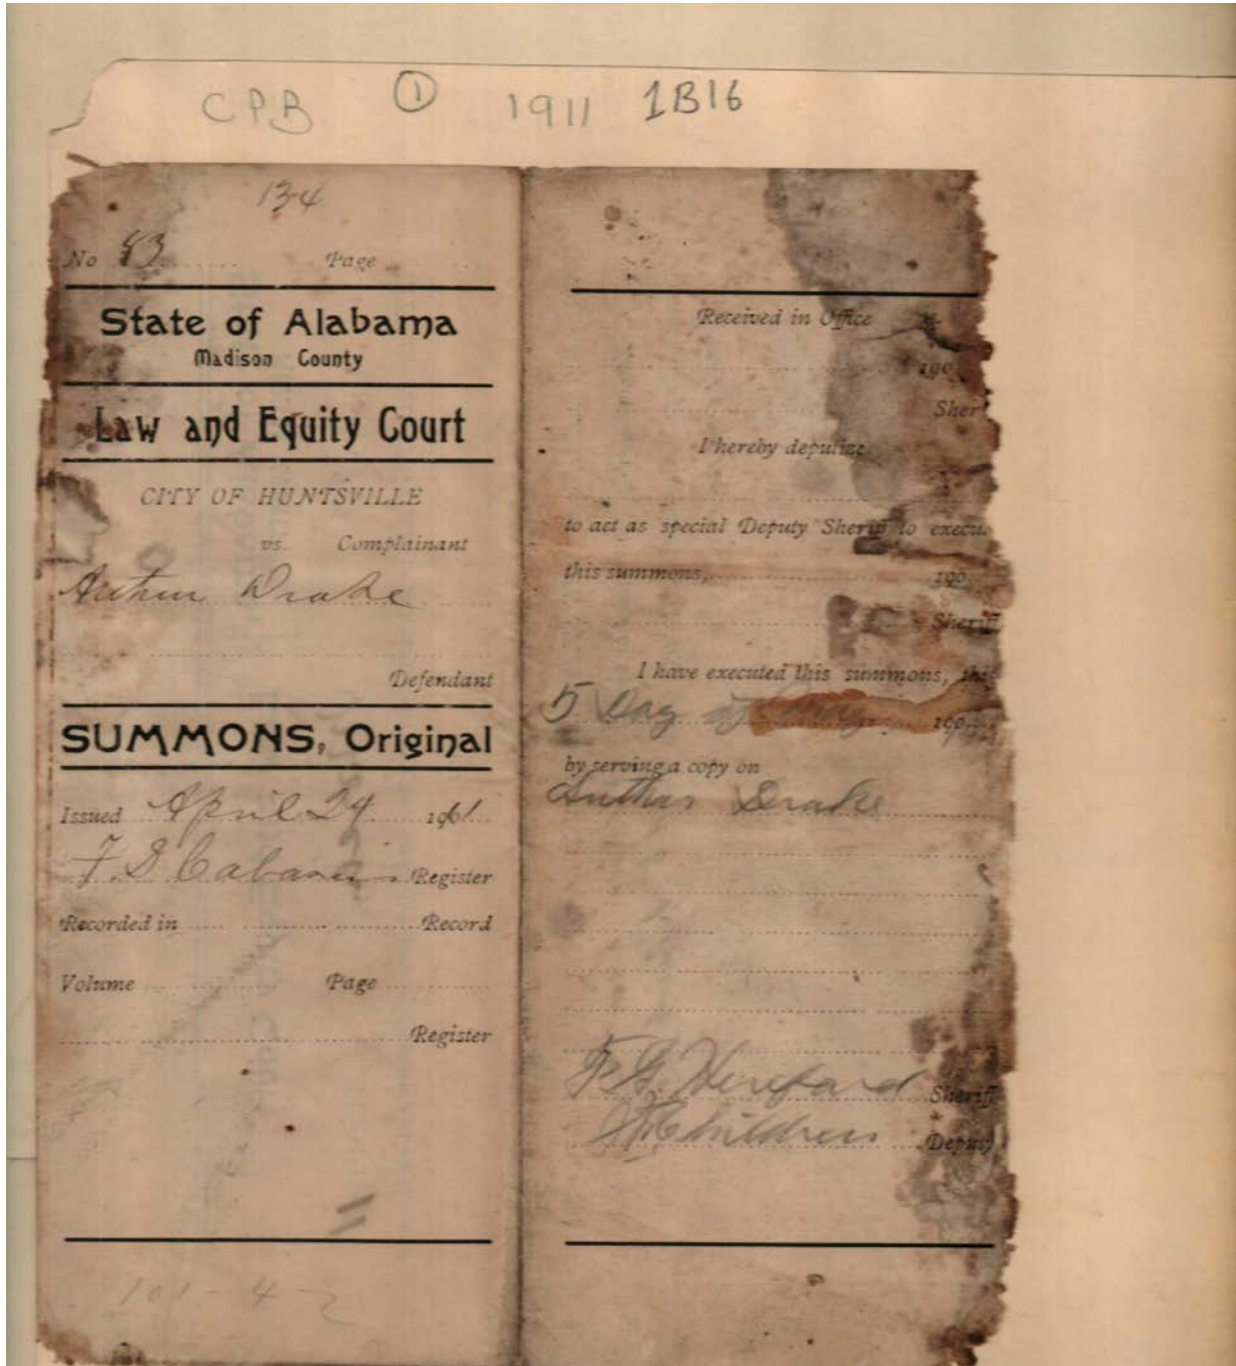 CPB ① 1911 1B16
134
No 83 Page
State of Alabama
Madison County
Law and Equity Court
CITY OF HUNTSVILLE
vs. Complainant
Arthur Drake
Defendant
SUMMONS, Original
Issued April 24 1911
F. S Cabaniss Register
Recorded in Record
Volume Page
Register
101-4-2
Received in Office
190
Sher
I hereby deputize
to act as special Deputy Sheriff to execu
this summons, 190
Sheriff
I have executed this summons, thi
5 Day of May 190
by serving a copy on
Arthur Drake
F. G. Hereford Sheriff
Childress Deputy